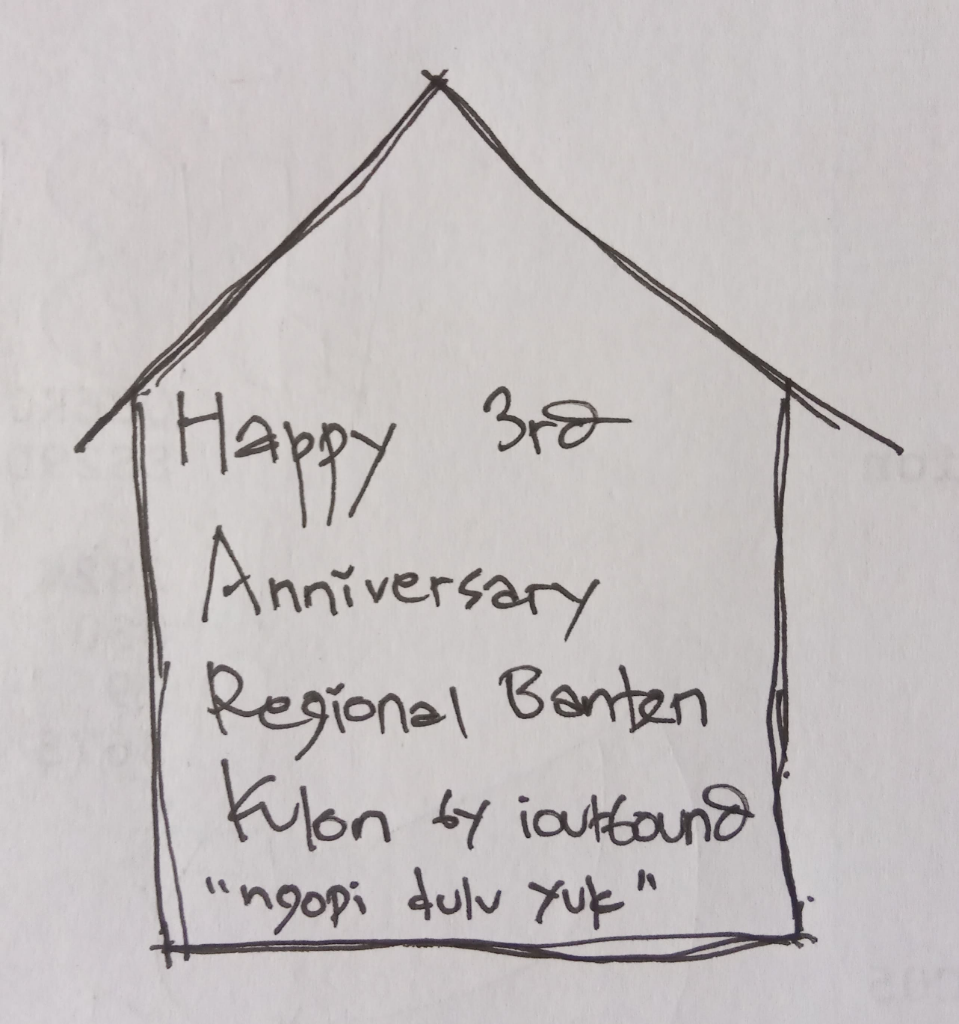 Happy 3rd
Anniversary
Regional Banten
Kulon by ioutbound
"ngopi dulu yuk"